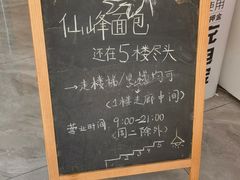 仙峰面包
还在5楼尽头
→走楼梯/坐梯均可
(1楼走廊中间)
营业时间：9:00-21:00
(周二除外)
使用